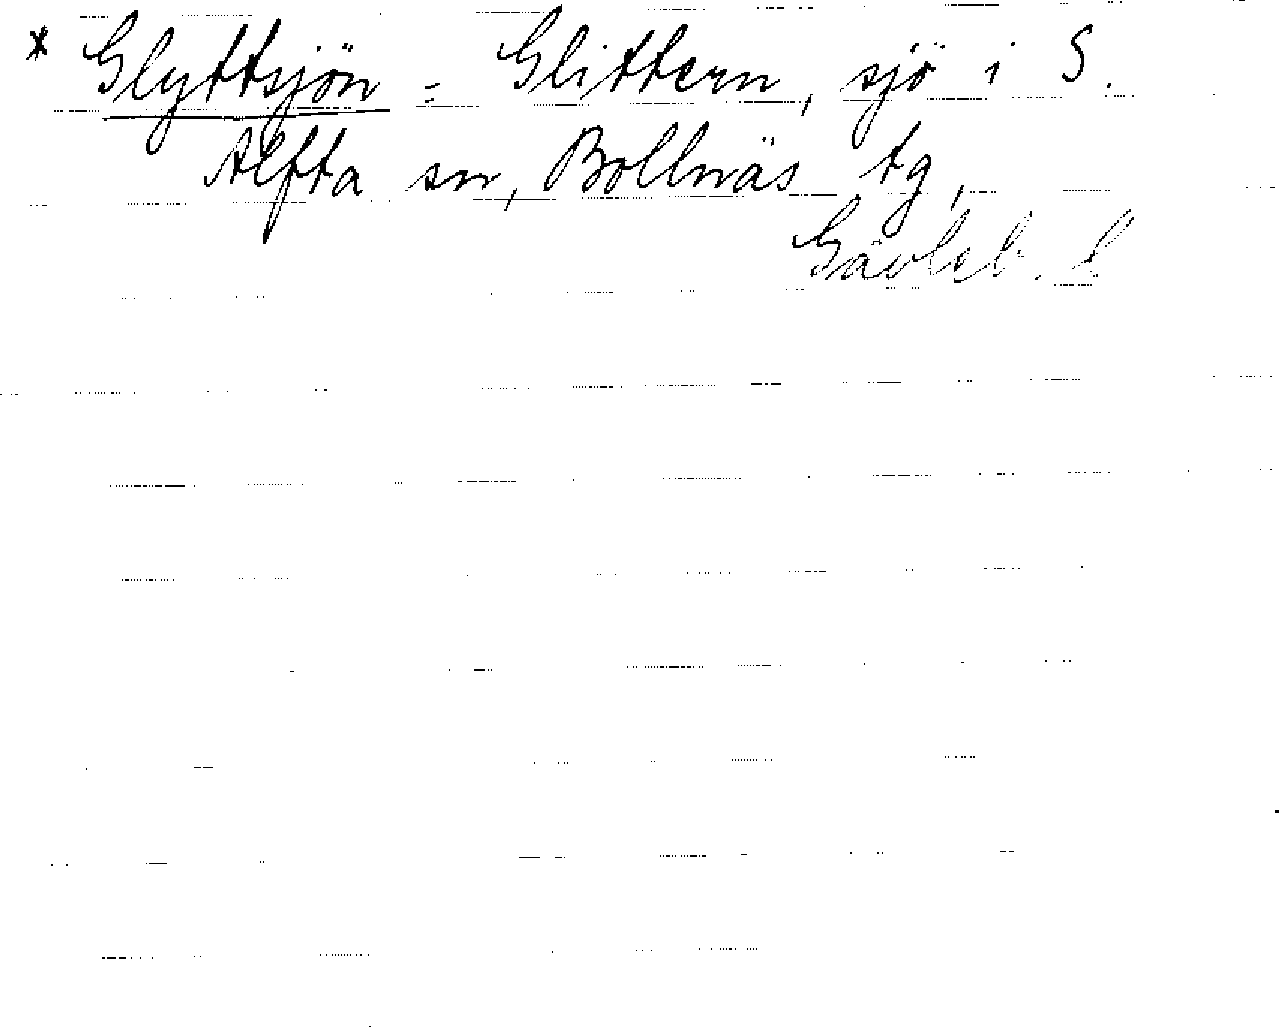 * Glyttsjön = Glittern, sjö i S.
Alfta sn, Bollnäs tg,
Gävleb. l